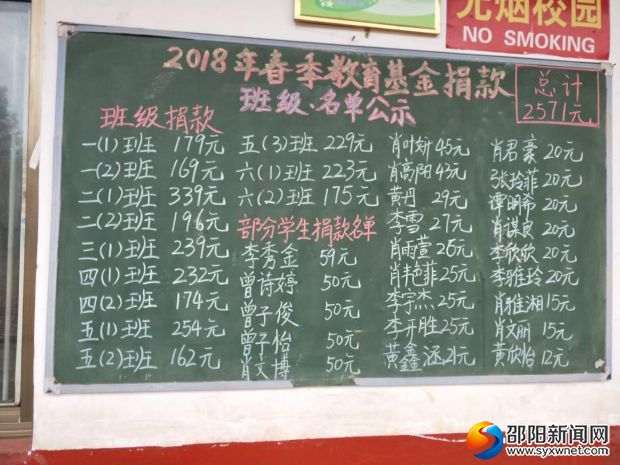 无烟校园
NO SMOKING
2018年春季教育基金捐款
班级、名单公示
总计
2571元
班级捐款
一(1)班 179元
一(2)班 169元
二(1)班 339元
二(2)班 196元
三(1)班 239元
四(1)班 232元
四(2)班 174元
五(1)班 254元
五(2)班 162元
五(3)班 229元
六(1)班 223元
六(2)班 175元
部分学生捐款名单
李秀金 59元
曾诗婷 50元
曾子俊 50元
曾子怡 50元
肖文博 50元
肖叶妍 45元
肖高阳 43元
黄丹 29元
李雪 27元
肖雨萱 26元
肖艳菲 25元
李宇杰 25元
李开胜 25元
黄鑫涵 21元
肖君豪 20元
张玲菲 20元
谭明希 20元
肖谋良 20元
李欣欣 20元
李雅玲 20元
肖雅湘 15元
肖文丽 15元
黄欣怡 12元
邵阳新闻网
www.syxwnet.com